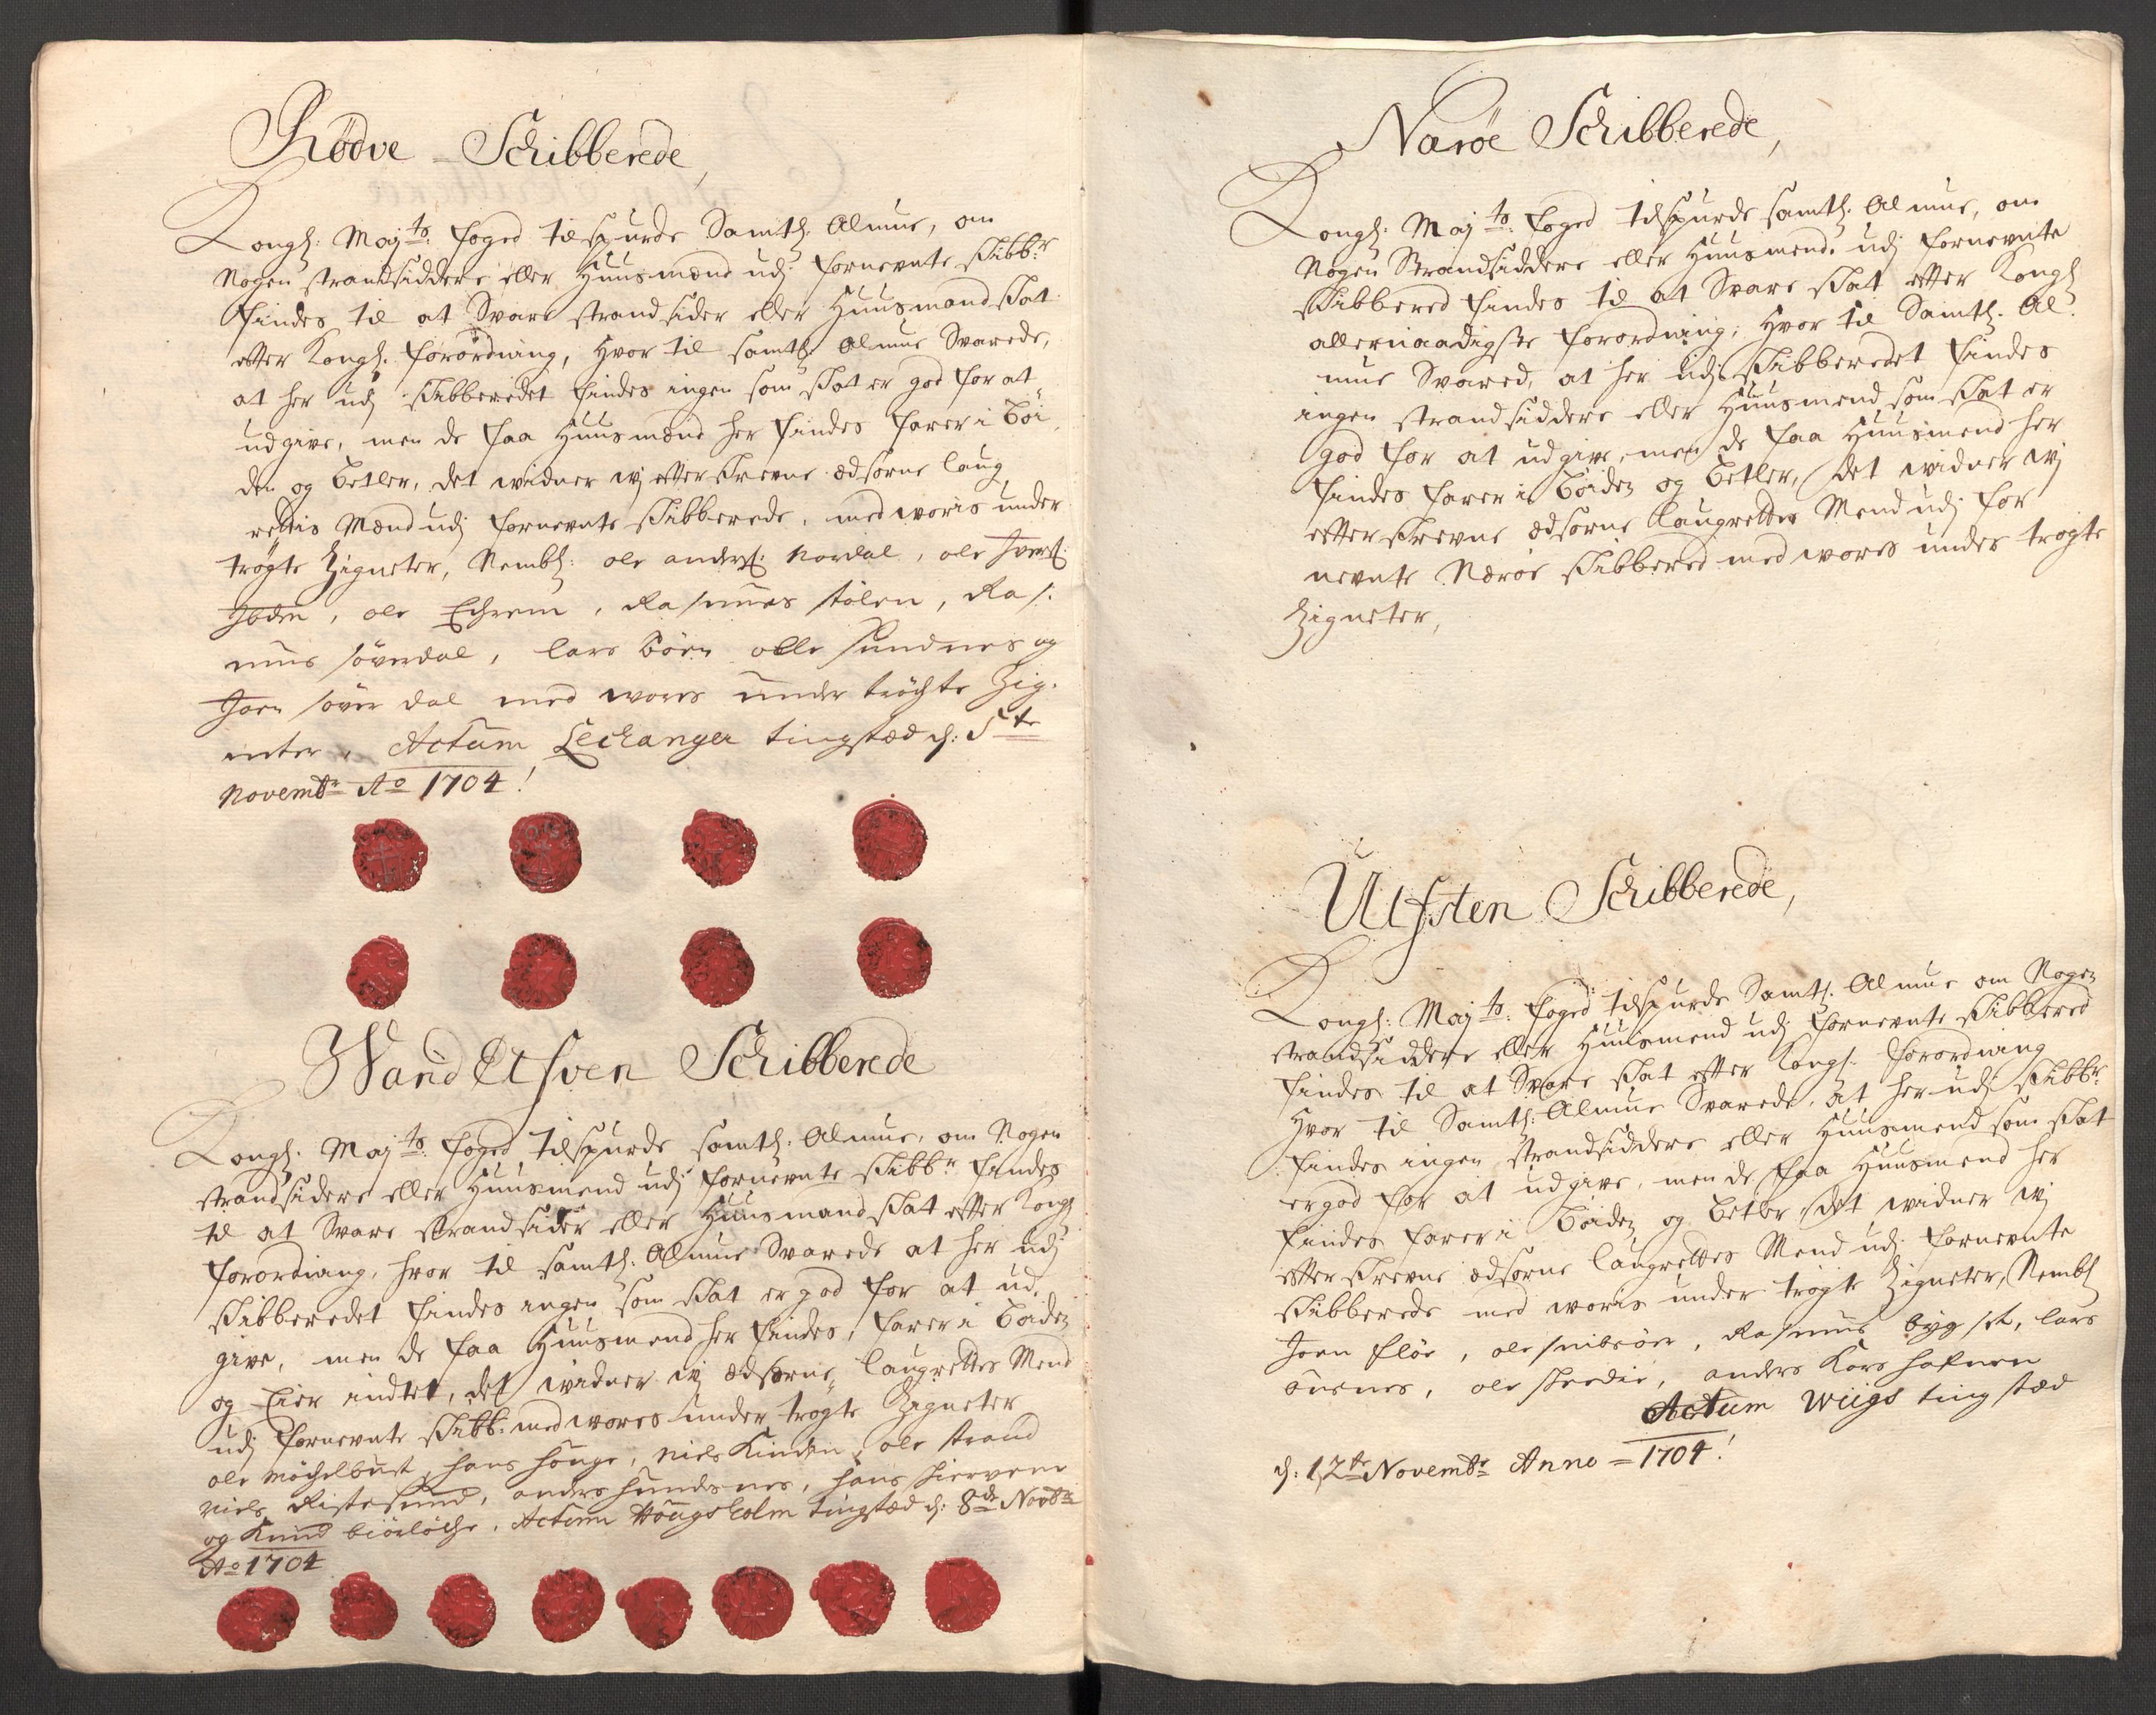 Rødve Schibberede,
Kongl: Maj:ts foged tilspurde Samtl: Almue, om
Nogen strandsiddere eller Huusmænd udj fornevnte skibb:r
findes til at Svare strandsider eller Huusmand skat
efter Kongl: forordning, hvor til samtl: Almue Svarede,
at her udj skibberedet findes ingen som skat er god for at
udgive, men de faa Huusmænd her findes farer i Bøi„
den og Betler, det widner wj effterskrevne Edsorne laug
rettis Mænd udj fornevnte skibberede, med woris under
trøgte Zigneter, Nembl: ole anders: Nordal, ole Ivers:
, ole Echrem, Rasmus stølen, Ras:
mus søverdal, lars Böen olle sundnes og
Joen søver dal med wores under tröchte Zig„
neter, Actum Lechanger tingstæd d: 5te
Novembr Ao 1704!
Wand Elfven Schibberede
Kongl: Maj:ts foged tilspurde samtl: Almue, om Nogen
strandsidere eller Huusmend udj fornevnte skibb:r findes
til at Svare strandsider eller Huusmand skat effter Kongl
forordning, hvor til samtl: Almue Svarede at her udj
skibberedet findes ingen som skat er god for at ud„
give, men de faa Huusmend her findes, farer i Bøiden
og Eier indtet, det widner wj Edsorne laugrettes Mend
udj fornevnte skibb: med wores under trøgte Zigneter
ole Möchelbust, hans houge, Niels Kinden, ole strand
Niels Ristesund, anders hundsnes, hans
og Knud . Actum Hougsholm tingstæd d: 8de Novbr
Ao 1704
Narøe Schibberede,
Kongl: Maj:ts foged tilspurde samtl: Almue, om
Nogen Strandsiddere eller Huusmend udj fornevnte
skibbered findes til at Svare skat effter Kongl
allernaadigste forordning, hvor til Samtl: Al„
mue Svared, at her udj skibberedet findes
ingen strandsiddere eller Huusmend som skat er
god for at udgive, men de faa Huusmend her
findes farer i Bøiden og Betler, det widner wj
effterskrevne Edsorne Laugrettes Mend udj for
nevnte Nærøe skibbered med wores under trøgte
Zigneter,
Utfsten Schibberede,
Kongl: Maj:ts foged tilspurde Samtl: Almue om Nogen
strandsiddere eller Huusmend udj fornevnte skibbered
findes til at Svare skat effter Kongl: forordning
hvor til Samtl: Almue Svarede, at her udj skibb:r
findes ingen strandsiddere eller Huusmend som skat
er god for at udgive, men de faa Huusmend her
findes farer i Bøiden og Betler det widner wj
effterskrevne Edsorne laugrettes Mend udj fornevnte
skibberede med woris under trøgte Zigneter, Nembl
Joen fløe, ole , Rasmus bygset, lars
, ole , anders Kors hafnen
Actum Wiigs tingstæd
d: 12te Novembr Anno = 1704!